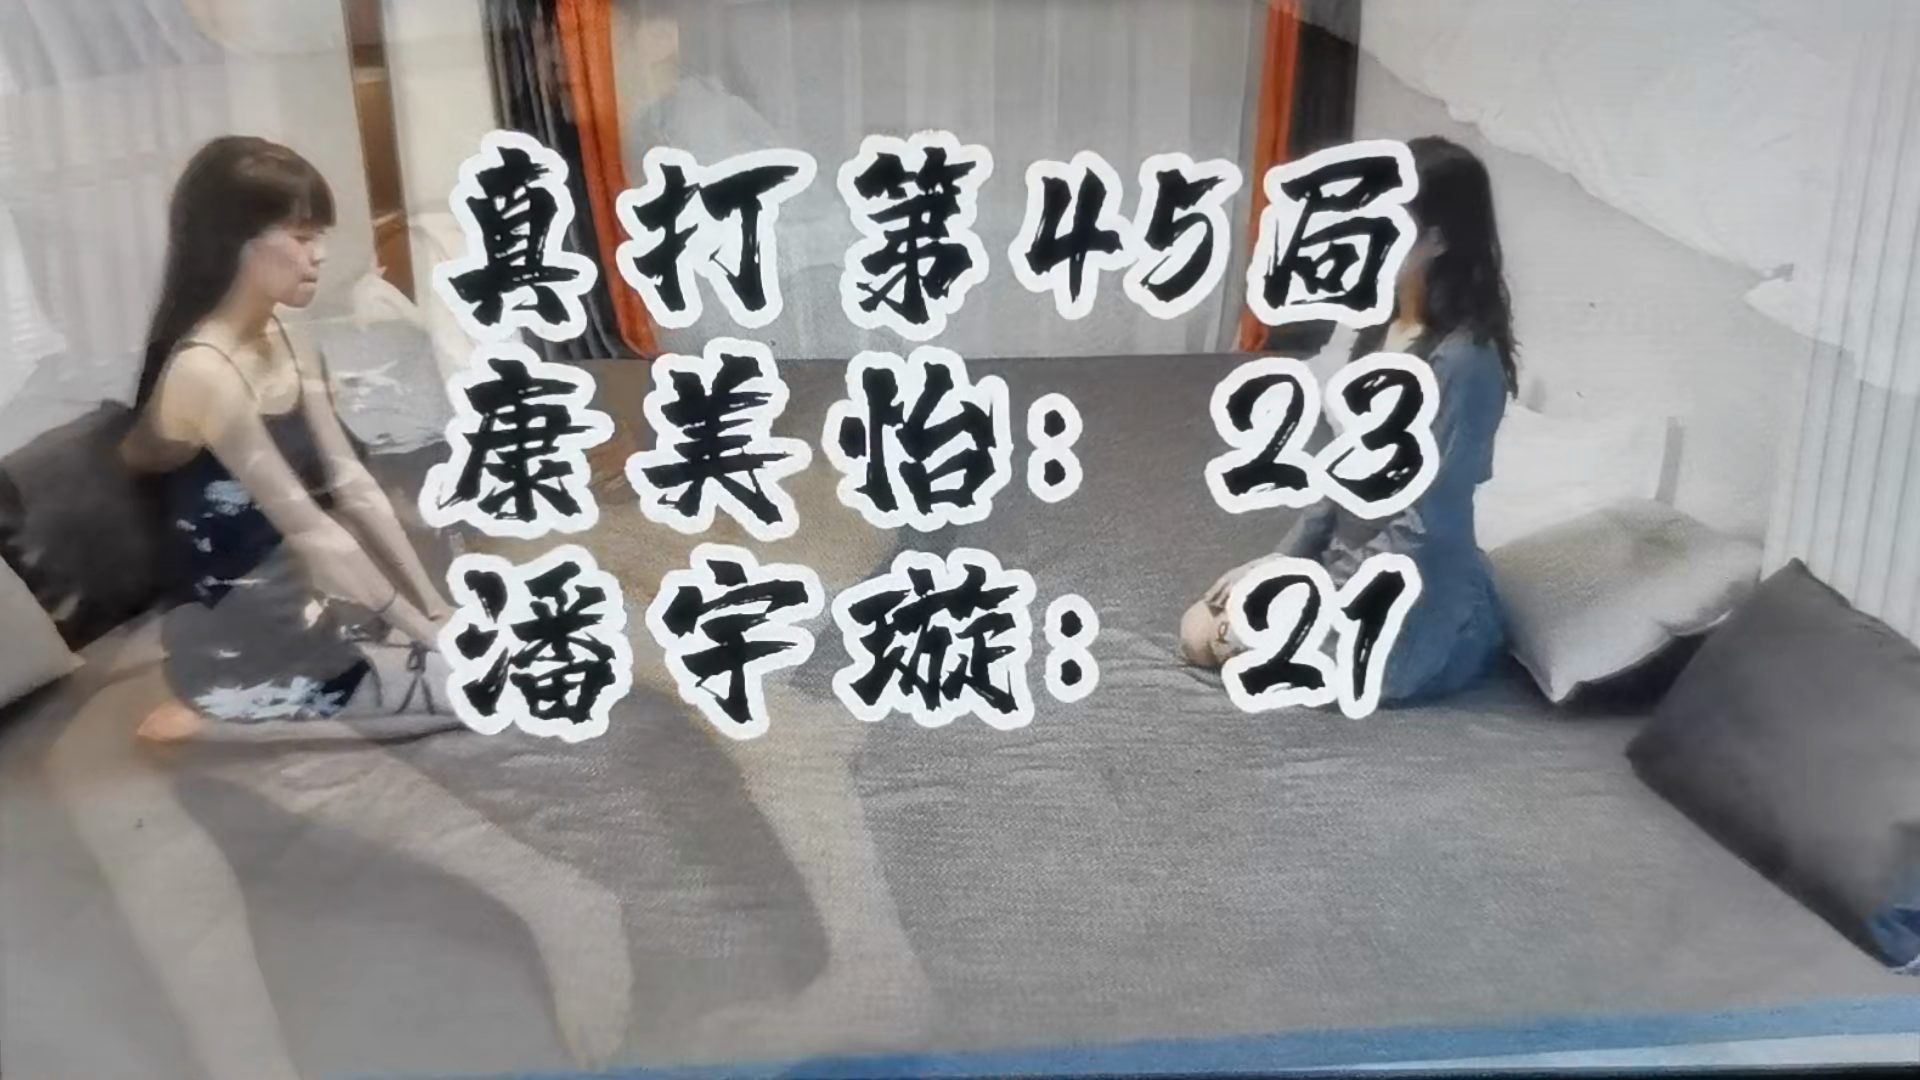 真打第45局
康美怡：23
潘宇璇：21